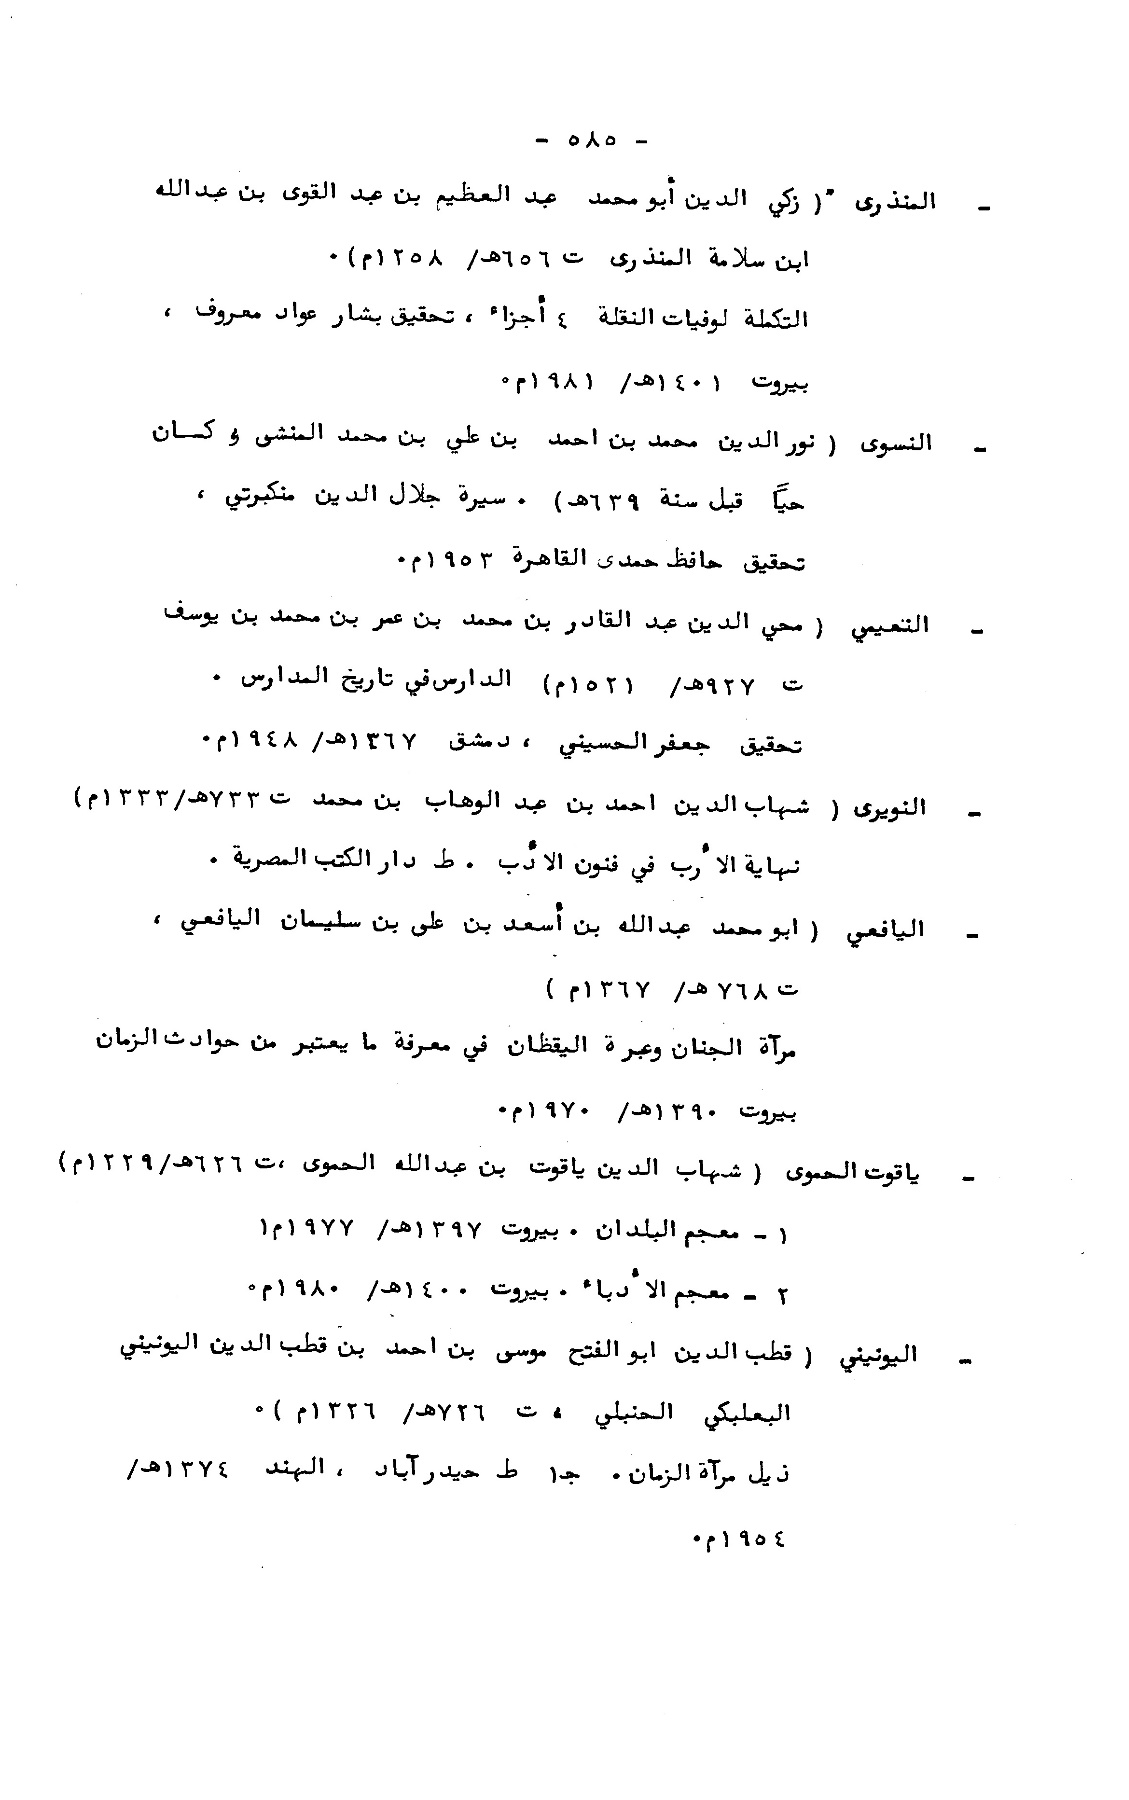 - ٥٨٥ -
- المنذرى ( زكي الدين أبو محمد عبد العظيم بن عبد القوى بن عبدالله
ابن سلامة المنذرى ت ٦٥٦هـ/ ١٢٥٨م) ٠
التكملة لوفيات النقلة ٤ أجزاء ، تحقيق بشار عواد معروف ،
بيروت ١٤٠١هـ/ ١٩٨١م٠
- النسوى ( نور الدين محمد بن احمد بن علي بن محمد المنشى وكان
حيًّا قبل سنة ٦٣٩هـ) ٠ سيرة جلال الدين منكبرتي ،
تحقيق حافظ حمدى القاهرة ١٩٥٣م٠
- النعيمي ( محي الدين عبد القادر بن محمد بن عمر بن محمد بن يوسف
ت ٩٢٧هـ/ ١٥٢١م) الدارس في تاريخ المدارس ٠
تحقيق جعفر الحسيني ، دمشق ١٣٦٧هـ/ ١٩٤٨م٠
- النويرى ( شهاب الدين احمد بن عبد الوهاب بن محمد ت ٧٣٣هـ/١٣٣٣م)
نهاية الأرب في فنون الأدب ٠ ط دار الكتب المصرية ٠
- اليافعي ( ابو محمد عبدالله بن أسعد بن على بن سليمان اليافعي ،
ت ٧٦٨ هـ/ ١٣٦٧م )
مرآة الجنان وعبرة اليقظان في معرفة ما يعتبر من حوادث الزمان
بيروت ١٣٩٠هـ/ ١٩٧٠م٠
- ياقوت الحموى ( شهاب الدين ياقوت بن عبدالله الحموى ،ت ٦٢٦هـ/١٢٢٩م)
١ - معجم البلدان ٠ بيروت ١٣٩٧هـ/ ١٩٧٧م١
٢ - معجم الأدباء ٠ بيروت ١٤٠٠هـ/ ١٩٨٠م٠
- اليونيني ( قطب الدين ابو الفتح موسى بن احمد بن قطب الدين اليونيني
البعلبكي الحنبلي ، ت ٧٢٦هـ/ ١٣٢٦م ) ٠
ذيل مرآة الزمان ٠ جـ١ ط حيدر آباد ، الهند ١٣٧٤هـ/
١٩٥٤م٠